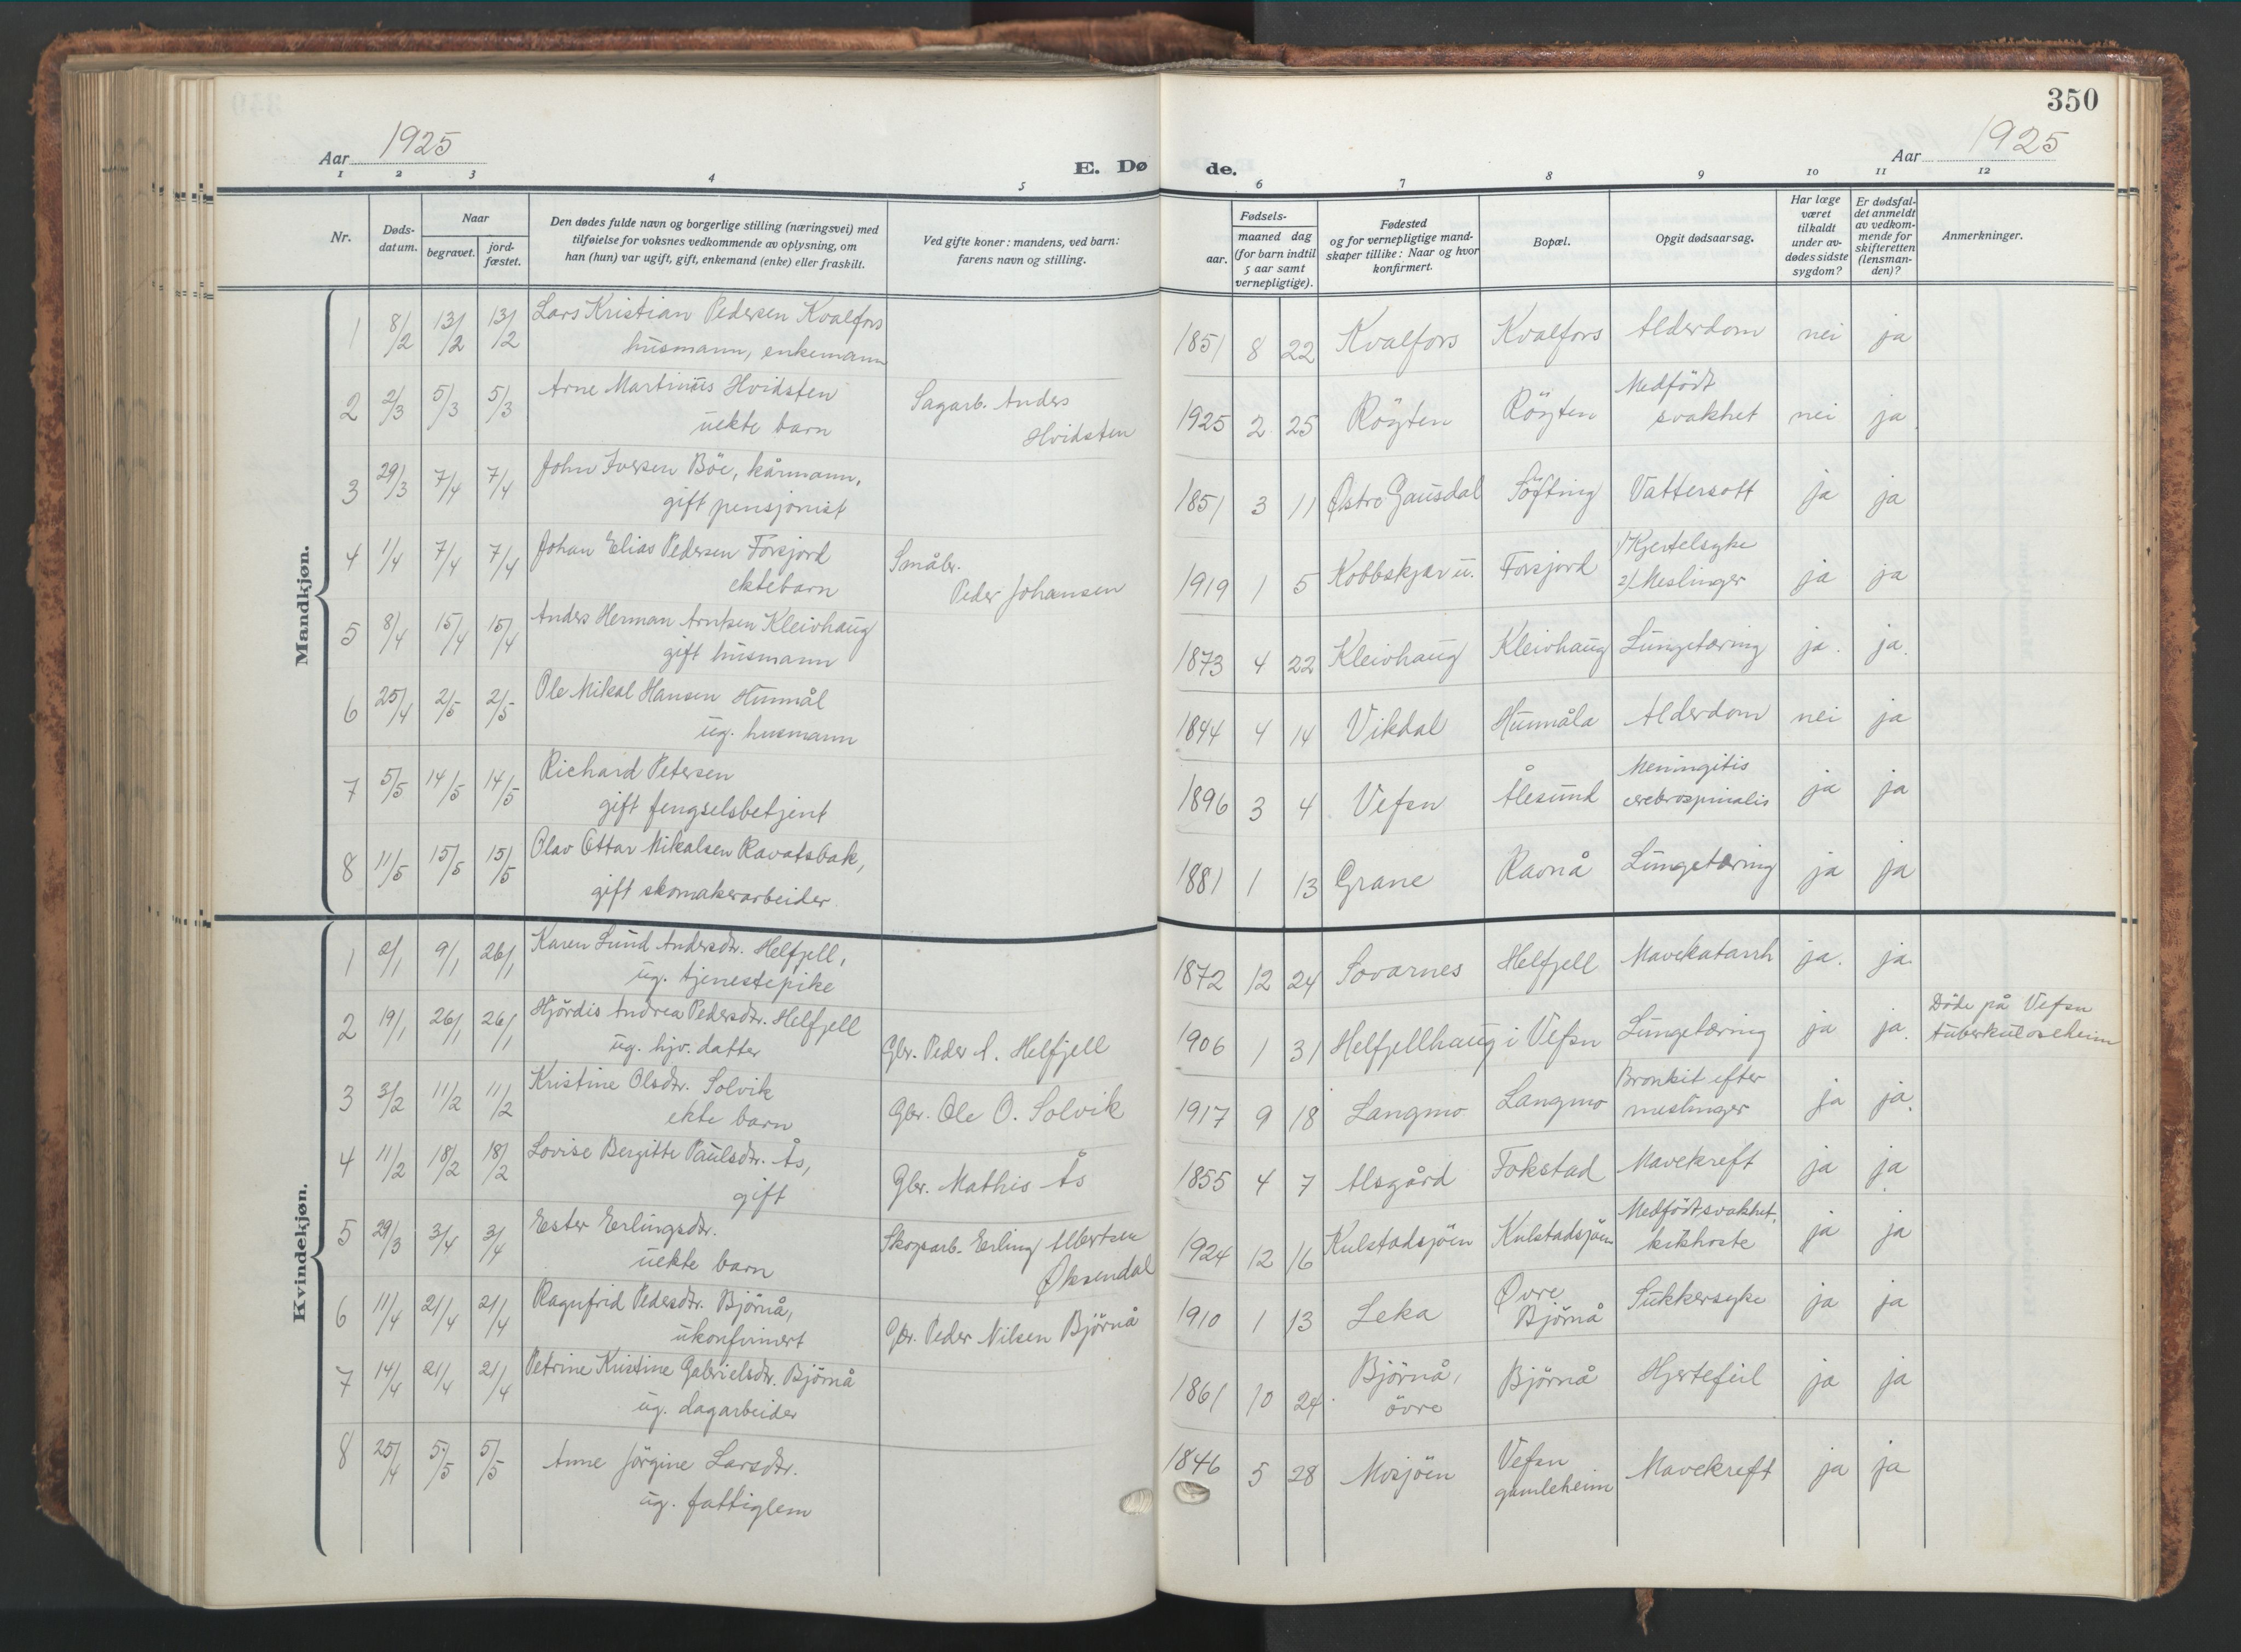 350
Aar 1925
E. Dø
de.
Aar 1925
1 2 3 4 5 6 7 8 9 10 11 12
Nr.
Døds-
datum.
Naar
begravet.
jord-
fæstet.
Den dødes fulde navn og borgerlige stilling (næringsvei) med
tilføielse for voksnes vedkommende av oplysning, om
han (hun) var ugift, gift, enkemand (enke) eller fraskilt.
Ved gifte koner: mandens, ved barn:
farens navn og stilling.
Fødsels-
aar.
maaned dag
(for barn indtil
5 aar samt
vernepligtige).
Fødested
og for vernepligtige mand-
skaper tillike: Naar og hvor
konfirmert.
Bopæl.
Opgit dødsaarsag.
Har læge
været
tilkaldt
under av-
dødes sidste
sygdom?
Er dødsfal-
det anmeldt
av vedkom-
mende for
skifteretten
(lensman-
den)?
Anmerkninger.
Mandkjøn.
1 8/2 13/2 13/2 Lars Kristian Pedersen Kvalfors
husmann, enkemann
1851 8 22 Kvalfors Kvalfors Alderdom nei ja
2 2/3 5/3 5/3 Arne Martinus Hvidsten
uekte barn
Sagarb. Anders
Hvidsten
1925 2 25 Röyten Röyten Medfödt
svakhet nei ja
3 29/3 7/4 7/4 John Iversen Böe, kårmann,
gift pensjonist
1851 3 11 Østre Gausdal Söfting Vattersott ja ja
4 1/4 7/4 7/4 Johan Elias Pedersen Forsjord
ektebarn
Småbr.
Peder Johansen
1919 1 5 Kobbskjær u. Forsjord 1/ Kjertelsyke
2/ Meslinger ja ja
5 8/4 15/4 15/4 Anders Herman Arntsen Kleivhaug
gift husmann
1873 4 22 Kleivhaug Kleivhaug Lungetæring ja. ja.
6 25/4 2/5 2/5 Ole Mikal Hansen Hunmål
ug. husmann
1844 4 14 Vikdal Hunmåla Alderdom nei ja
7 5/5 14/5 14/5 Richard Petersen
gift fengselsbetjent
1896 3 4 Vefsn Ålesund Meningitis
cerebrospinalis ja ja
8 11/5 15/5 15/5 Olav Ottar Mikalsen Ravatsbak,
gift skomakerarbeider
1881 1 13 Grane Ravnå Lungetæring ja ja
Kvindekjøn.
1 2/1 9/1 26/1 Karen Lund Andersdtr. Helfjell,
ug. tjenestepike
1872 12 24 Sovarnes Helfjell Mavekatarrh ja. ja.
2 19/1 26/1 26/1 Hjördis Andrea Pedersdtr. Helfjell
ug. hjv. datter
Gbr. Peder A. Helfjell
1906 1 31 Helfjellhaug i Vefsn Lungetæring ja ja. Döde på Vefsn
tuberkuloseheim
3 3/2 11/2 11/2 Kristine Olsdtr. Solvik
ekte barn
Gbr. Ole O. Solvik
1917 9 18 Langmo Langmo Bronkit efter
meslinger ja ja.
4 11/2 18/2 18/2 Lovise Bergitte Paulsdtr. Ås,
gift
Gbr. Mathis Ås
1855 4 7 Alsgård Fokstad Mavekreft ja ja
5 29/3 3/4 3/4 Ester Erlingsdtr.
uekte barn
Skogsarb. Erling Albertsen
Øksendal
1924 12 16 Kulstadsjöen Kulstadsjöen Medfödt svakhet,
kikhoste ja ja
6 11/4 21/4 21/4 Ragnfrid Pedersdtr. Björnå,
ukonfirmert
Gbr. Peder Nilsen Björnå
1910 1 13 Leka Øvre
Björnå Sukkersyke ja ja
7 14/4 21/4 21/4 Petrine Kristine Gabrielsdtr. Björnå
ug. dagarbeider
1861 10 24 Björnå,
övre Björnå Hjertefeil ja ja
8 25/4 5/5 5/5 Anne Jörgine Larsdtr.
ug. fattiglem
1846 5 28 Mosjöen Vefsn
gamleheim Mavekreft ja ja